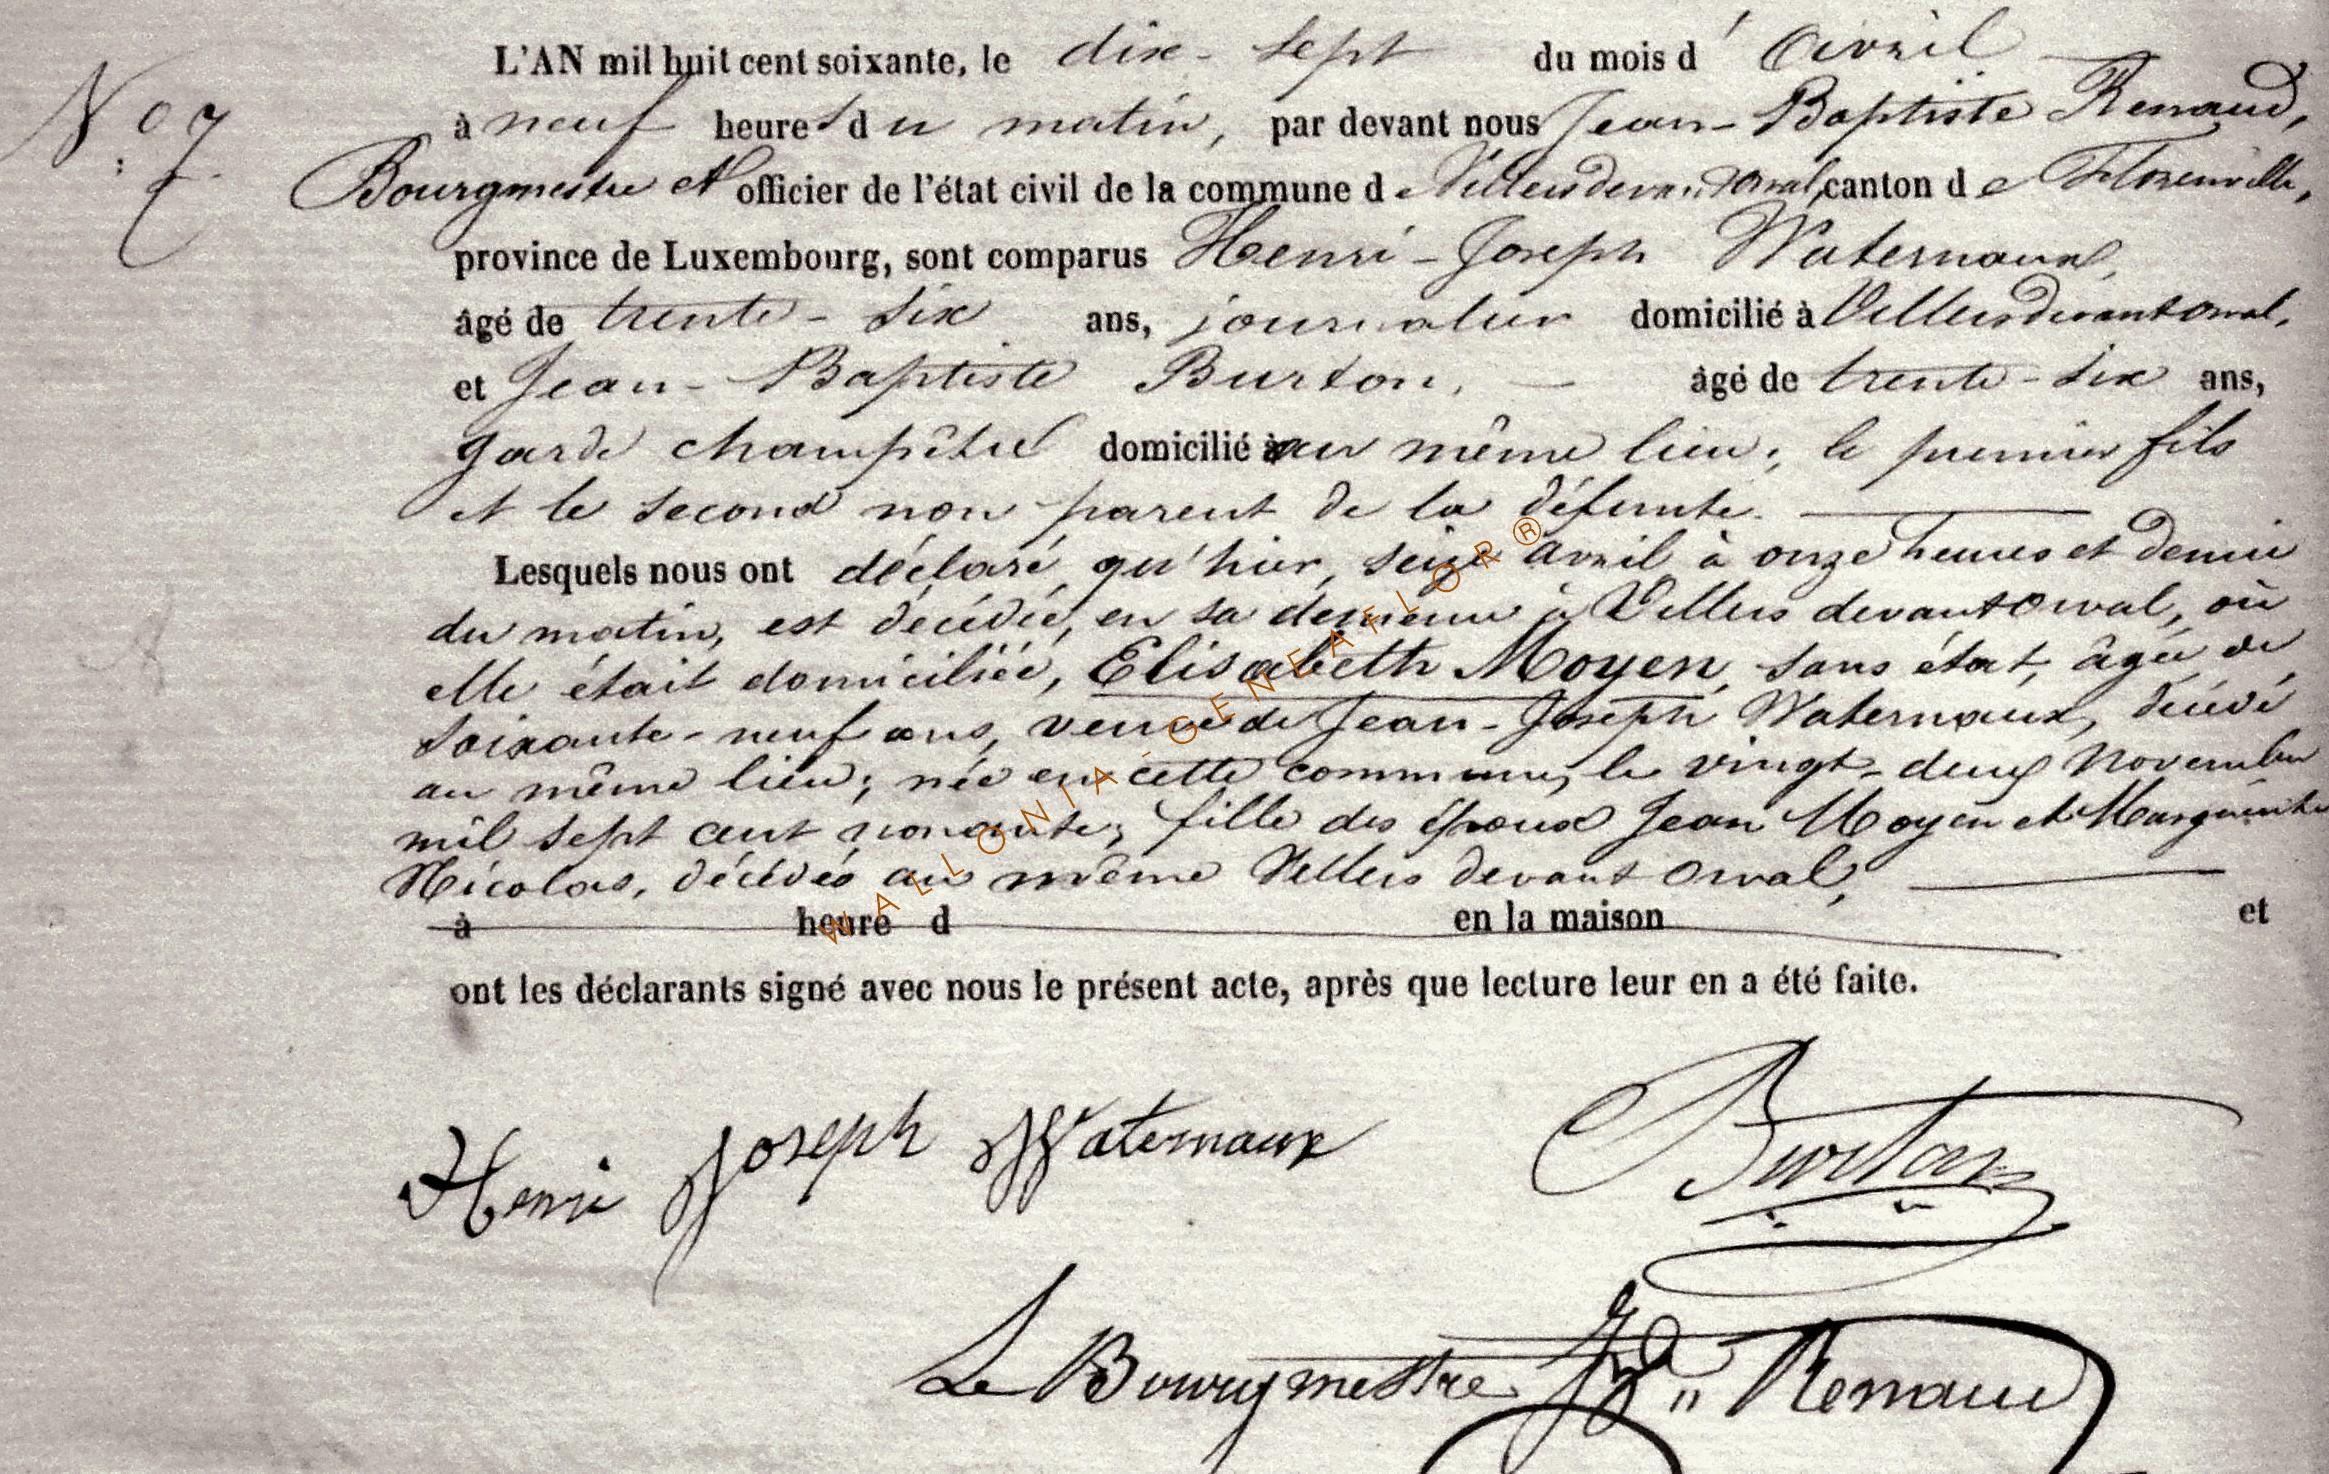 L'AN mil huit cent soixante, le dix-sept du mois d'avril
N° 7
à neuf heures du matin, par devant nous Jean-Baptiste Renaud,
Bourgmestre et officier de l'état civil de la commune de Villers devant Orval, canton de Florenville,
province de Luxembourg, sont comparus Henri-Joseph Waternaux,
âgé de trente-six ans, journalier domicilié à Villers devant Orval,
et Jean-Baptiste Burton, — âgé de trente-six ans,
garde champêtre domicilié au même lieu; le premier fils
et le second non parent de la défunte.
Lesquels nous ont déclaré qu'hier, seize avril à onze heures et demie
du matin, est décédée, en sa demeure à Villers devant Orval, où
elle était domiciliée, Elisabeth Moyen, sans état, âgée de
soixante-neuf ans, veuve de Jean-Joseph Waternaux, décédé
au même lieu; née en cette commune, le vingt-deux novembre
mil sept cent nonante; fille des époux Jean Moyen et Marguerite
Nicolas, décédés au même Villers devant Orval,
à heure d en la maison et
ont les déclarants signé avec nous le présent acte, après que lecture leur en a été faite.
Henri Joseph Waternaux Burton
Le Bourgmestre Renaud
WALLONIA-GENEAFLOR®